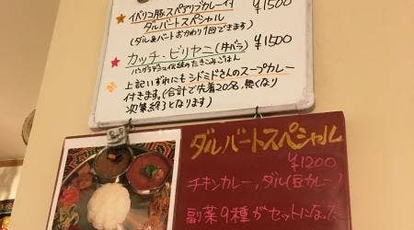 ★イベリコ豚スペアリブカレー付 ¥1500
ダルバートスペシャル
(ダル&バートおかわり1回できます)
★カッチ・ビリヤニ(牛バラ) ¥1500
バングラデシュ伝統のたきこみごはん
上記いずれにもシドミドさんのスープカレー
付きます。(合計で先着20名、無くなり
次第終了となります)
ダルバートスペシャル
¥1200
チキンカレー、ダル(豆カレー)
副菜9種がセットになった